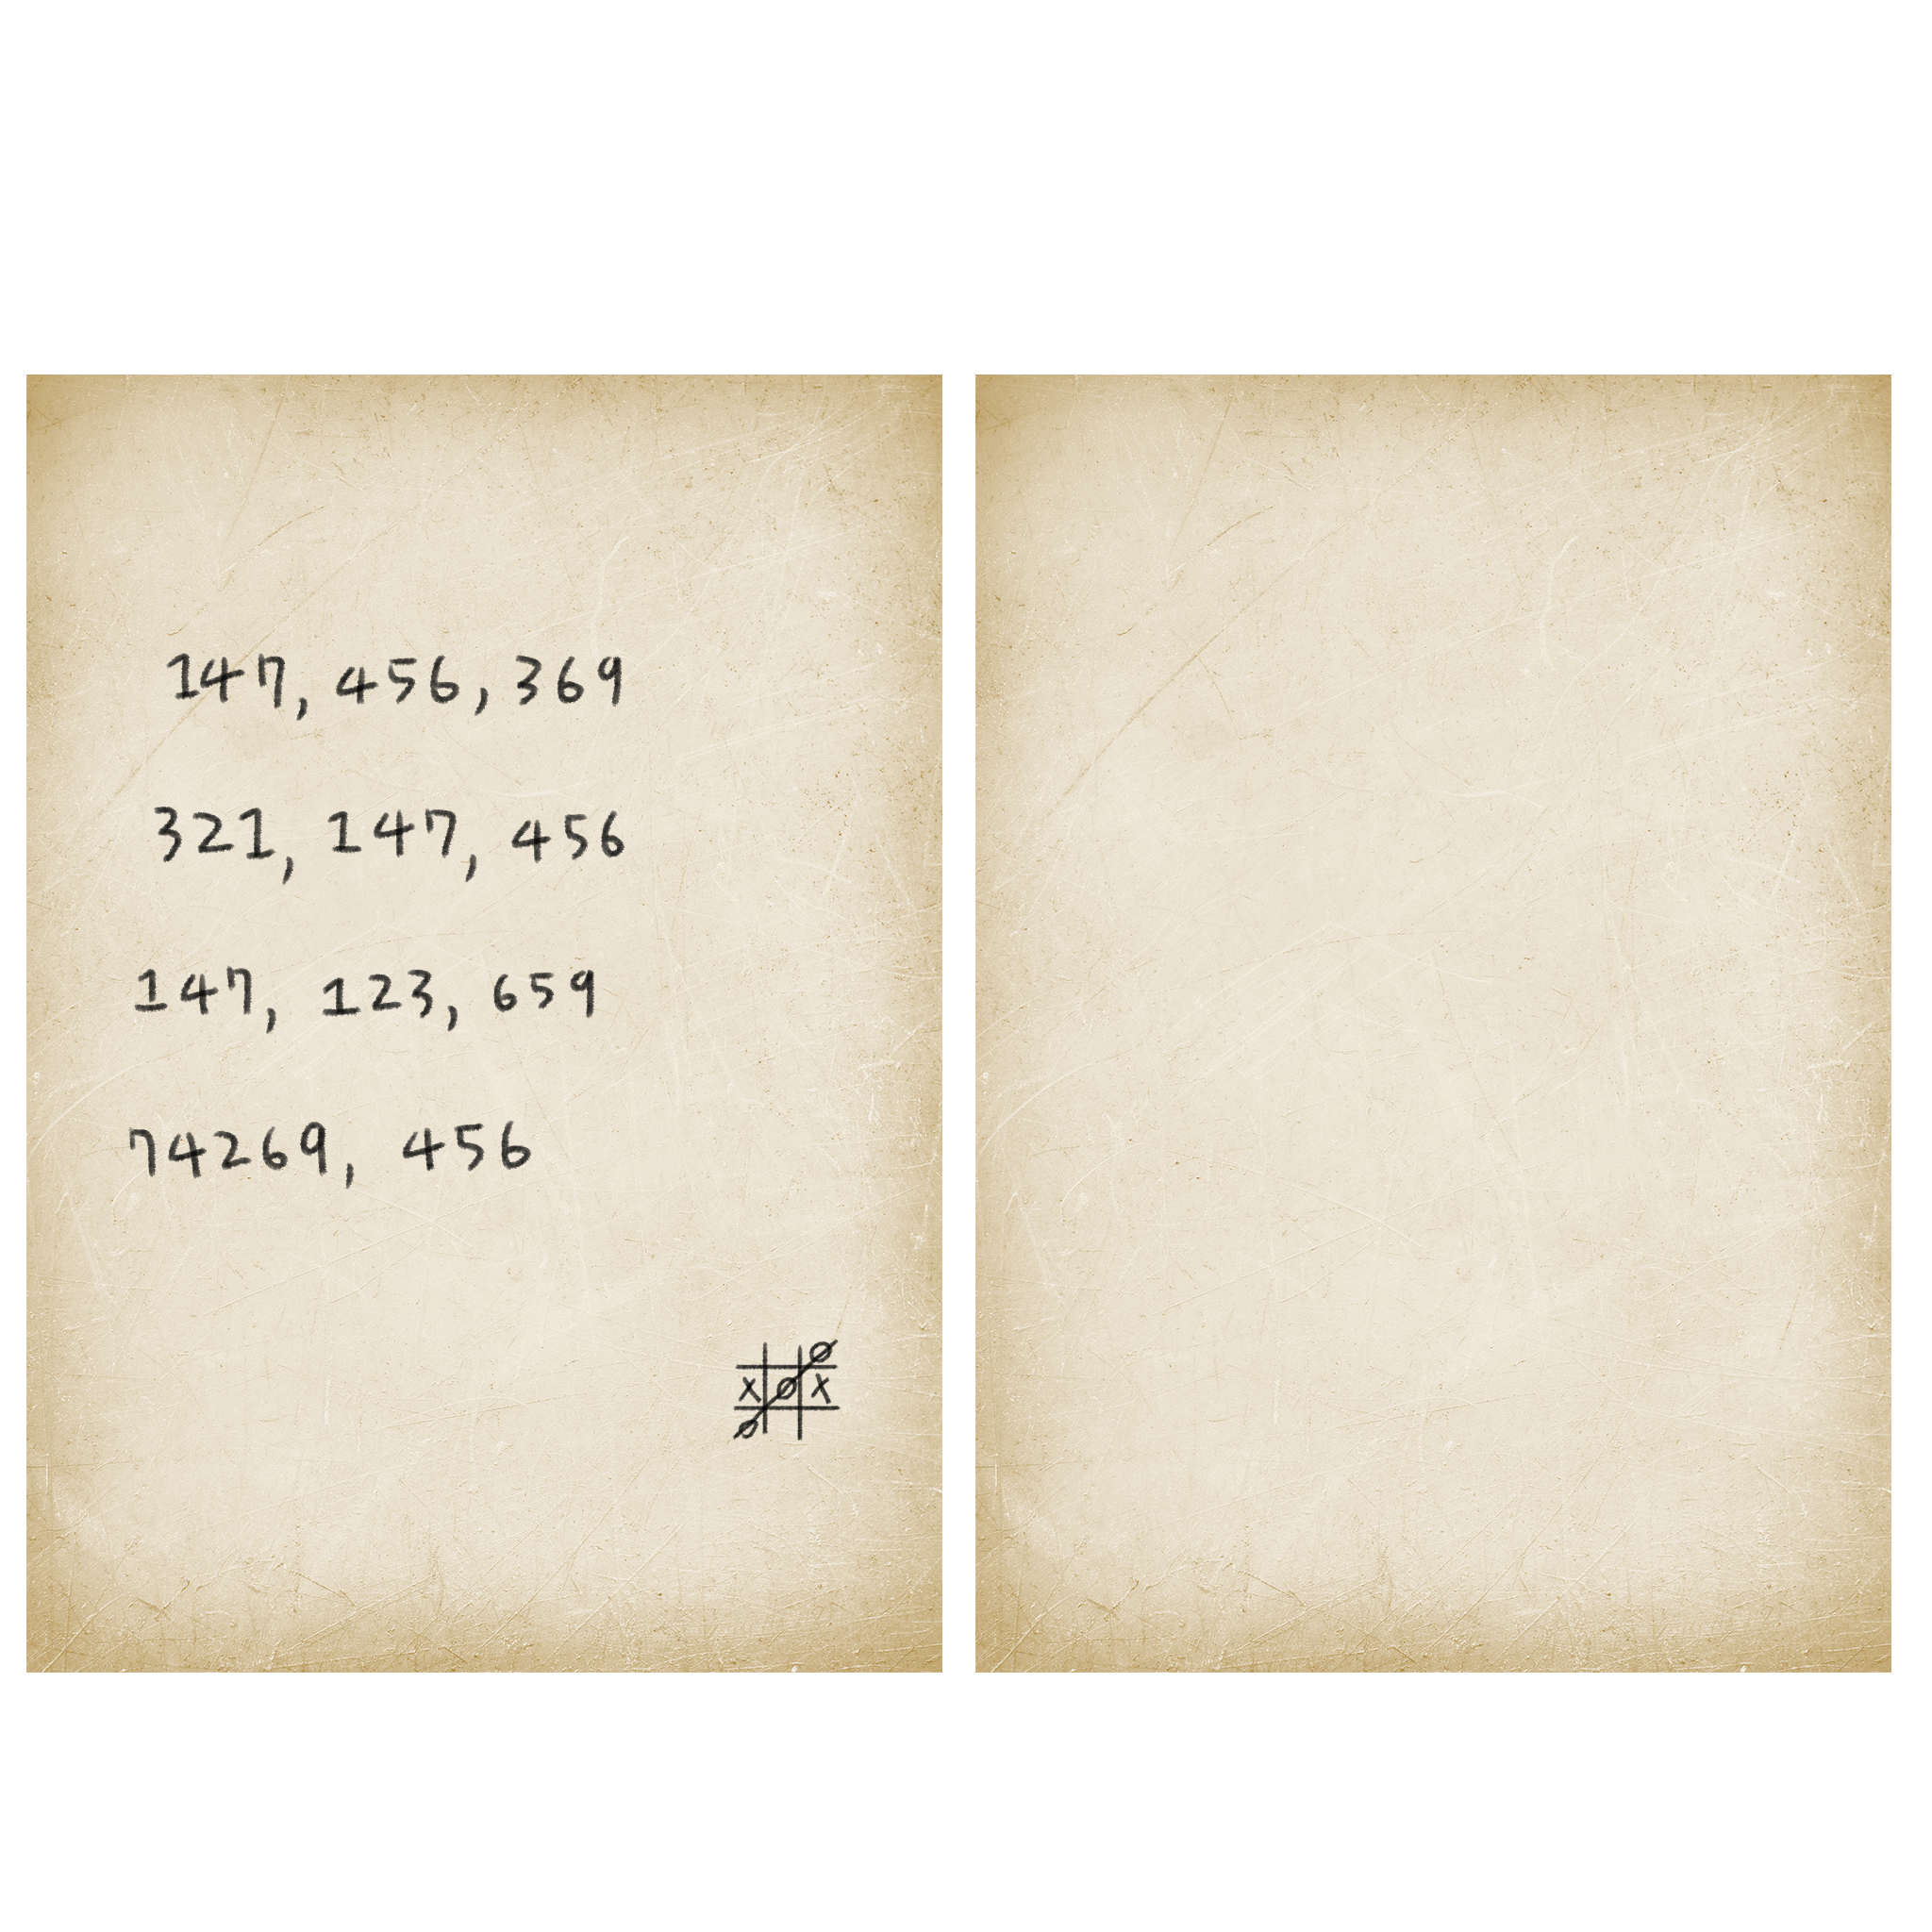 147, 456, 369
321, 147, 456
147, 123, 659
74269, 456